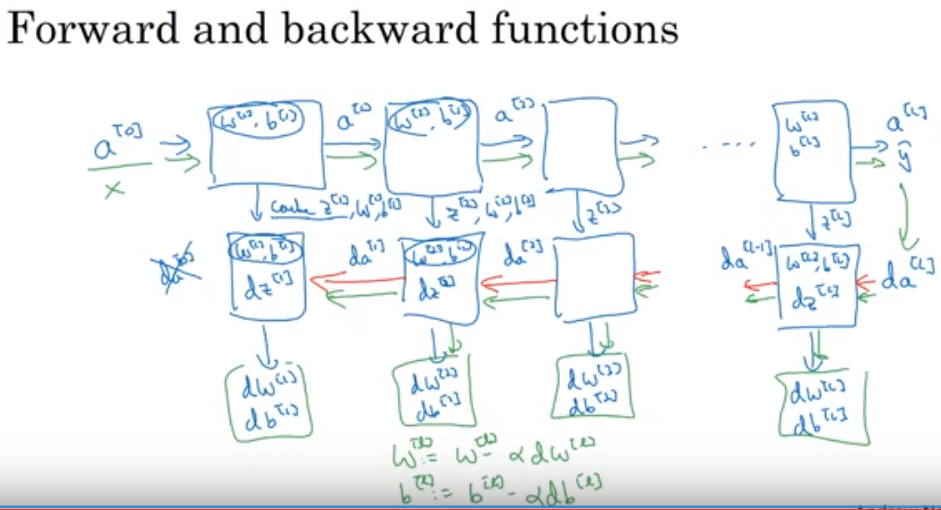 Forward and backward functions
a^[0] w^[1], b^[1] a^[1] w^[2], b^[2] a^[2] w^[L] a^[L]
x b^[L] ŷ
cache z^[1], w^[1], b^[1] z^[2], w^[2], b^[2] z^[3] z^[L]
da^[0] w^[1], b^[1] da^[1] w^[2], b^[2] da^[2] da^[L-1] w^[L], b^[L] da^[L]
dz^[1] dz^[2] dz^[L]
dw^[1] dw^[2] dw^[3] dw^[L]
db^[1] db^[2] db^[3] db^[L]
w^[l] := w^[l] - αdw^[l]
b^[l] := b^[l] - αdb^[l]